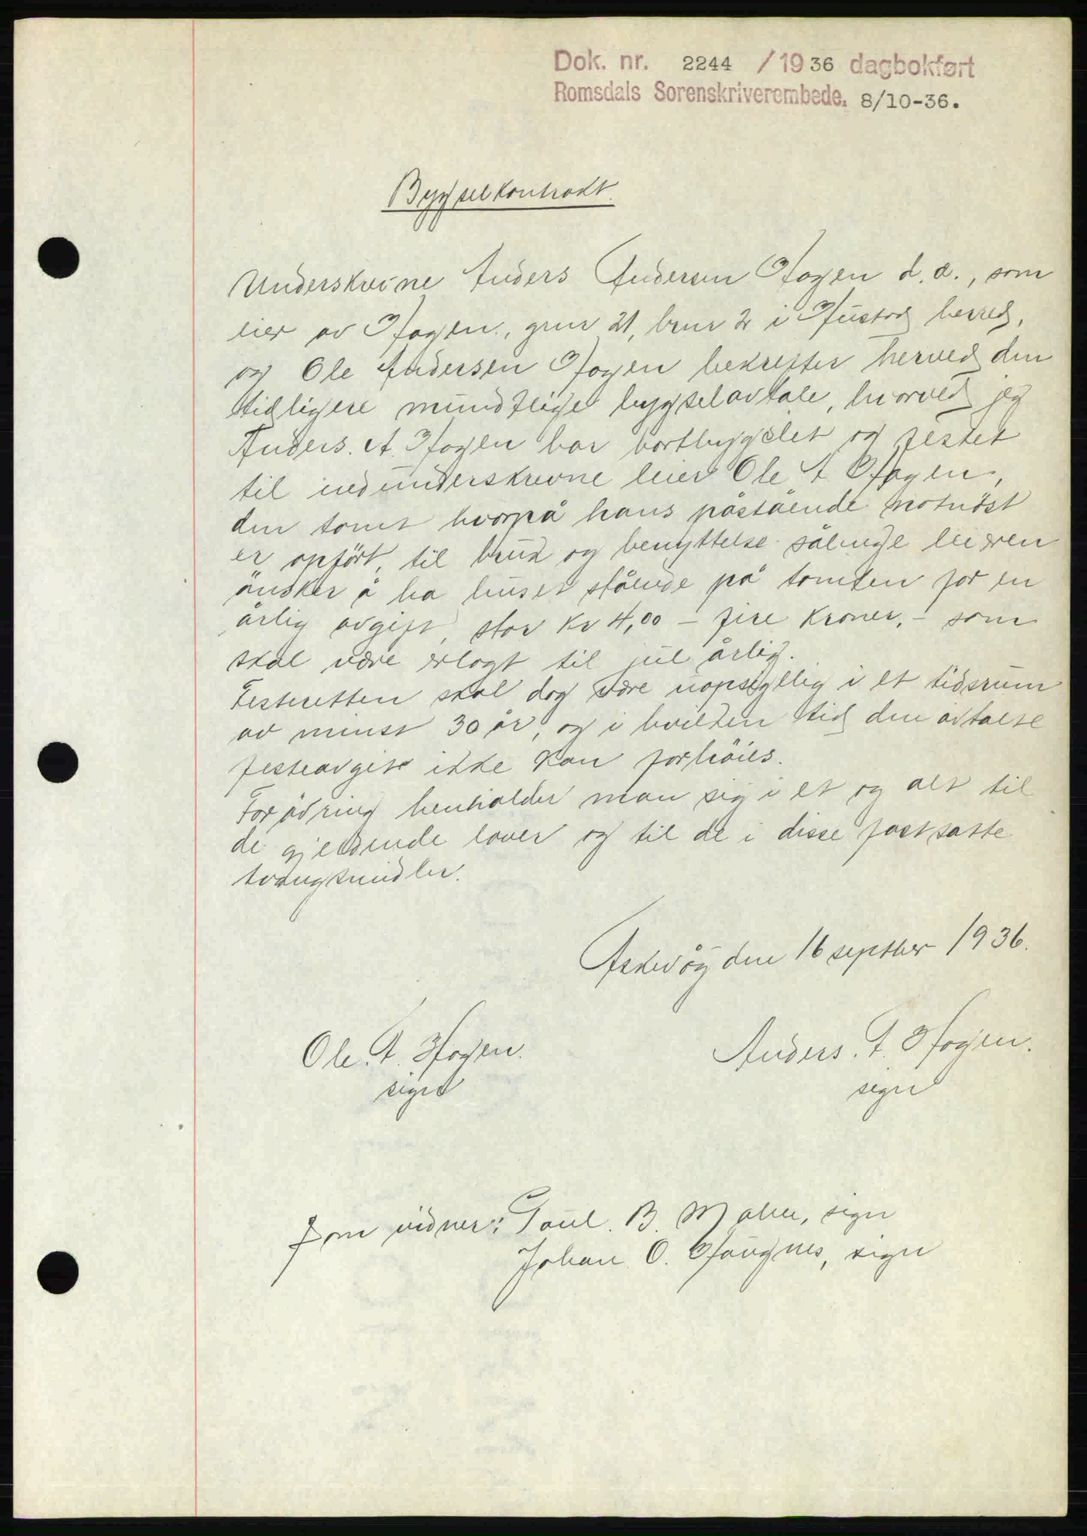 Dok. nr. 2244 / 1936 dagbokført
Romsdals Sorenskriverembede. 8/10-36.
Bygselkontrakt.
Underskrivne Anders Andersen Hagen d.æ., som
eier av Hagen, gnr 21, bnr 2 i Hustad herred,
og Ole Andersen Hagen bekrefter herved den
tidligere mundtlige bygselavtale, hvorved jeg
Anders. A. Hagen har bortbygslet og festet
til nedunderskrevne leier Ole A Hagen,
den tomt hvorpå hans påstående notnöst
er opfört, til bruk og benyttelse sålenge leieren
önsker å ha huset stående på tomten for en
årlig avgift, stor kr 4,00 – fire kroner, – som
skal være erlagt til jul årlig.
Festeretten skal dog være uopsigelig i et tidsrum
av minst 30 år, og i hvilken tid den avtalte
festeavgift ikke kan forhöies.
For övring henholder man sig i et og alt til
de gjeldende lover og til de i disse fastsatte
tvangsmidler.
Askevåg den 16 septber 1936.
Ole. A. Hagen.
sign
Anders. A. Hagen.
sign
Som vidner: Paul. B. Malen, sign
Johan O. Haugnes, sign